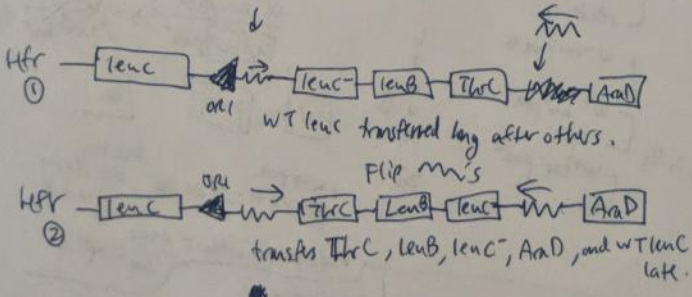 Hfr ① leuC ORI leuC⁻ leuB ThrC AraD
WT leuC transferred long after others.
Flip 's
Hfr ② leuC ORI ThrC LeuB leuC⁻ AraD
transfers ThrC, leuB, leuC⁻, AraD, and WT leuC
late.